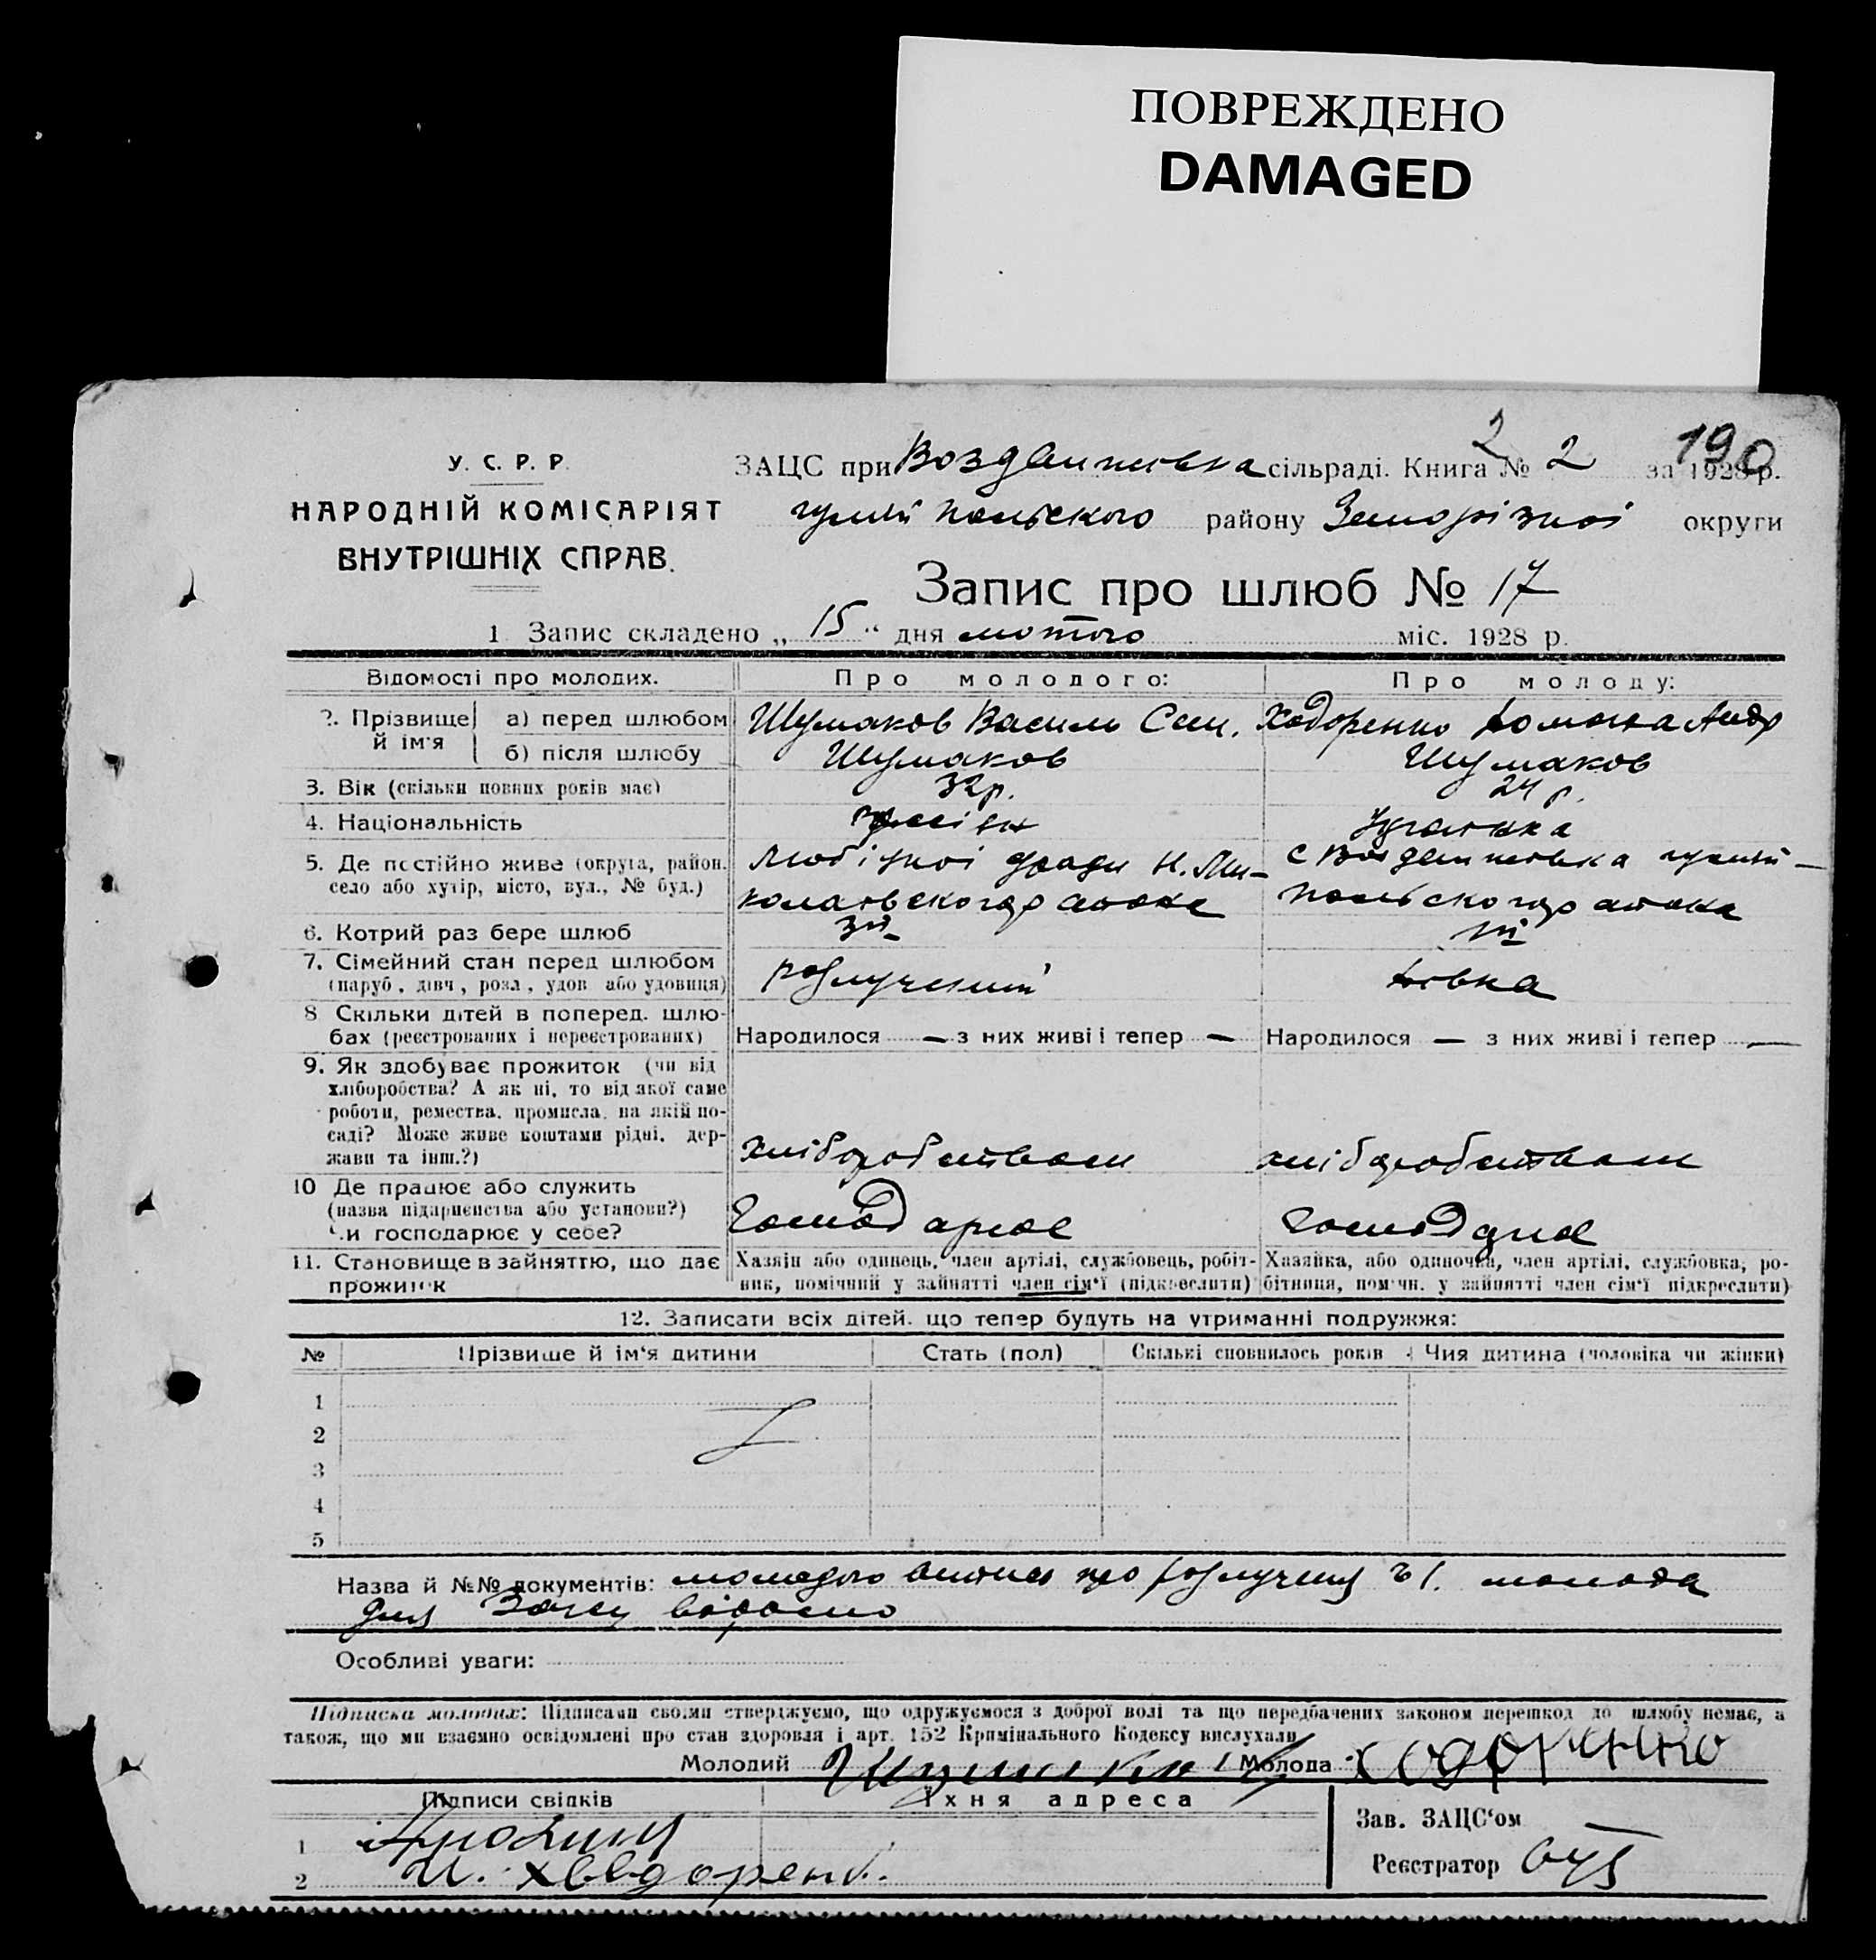 ПОВРЕЖДЕНО
DAMAGED
190
У. С. Р. Р.
НАРОДНІЙ КОМІСАРІЯТ
ВНУТРІШНІХ СПРАВ.
2
ЗАЦС при Воздвижевка сільраді. Книга № 2 за 1928 р.
гуляй польского району Запорізької округи
Запис про шлюб № 17
1 Запис складено „ 15 “ дня лютого міс. 1928 р.
Відомості про молодих. Про молодого: Про молоду:
2. Прізвище й ім'я а) перед шлюбом Шумаков Василь Сем. Ходоренко Домаха Андр
б) після шлюбу Шумаков Шумаков
3. Вік (скільки повних років має) 32 р. 24 р.
4. Національність
5. Де постійно живе (округа, район. с Воздвижевка гуляй-
село або хутір, місто, вул., № буд.) польского района
6. Котрий раз бере шлюб 3й 1й
7. Сімейний стан перед шлюбом розлучений дівка
(паруб., дівч., розл., удов. або удовиця)
8 Скільки дітей в поперед. шлю-
бах (реєстрованих і нереєстрованих) Народилося — з них живі і тепер — Народилося — з них живі і тепер —
9. Як здобуває прожиток (чи від
хліборобства? А як ні, то від якої саме
роботи, ремества, промисла, на якій по-
саді? Може живе коштами рідні, дер-
жави та інш.?) хліборобством хліборобством
10 Де працює або служить
(назва підприємства або установи?)
Чи господарює у себе? Господарює Господарює
11. Становище в зайняттю, що дає прожиток
Хазяїн або одинець, член артілі, службовець, робіт-
ник, помічний у зайнятті член сім'ї (підкреслити)
Хазяйка, або одиночка, член артілі, службовка, ро-
бітниця, помічн. у зайнятті член сім'ї підкреслити)
12. Записати всіх дітей, що тепер будуть на утриманні подружжя:
№ Прізвише й ім'я дитини Стать (пол) Скількі сповнилось років Чия дитина (чоловіка чи жінки)
1
2
3
4
5
Назва й №№ документів: молодого витяг про розлучення молода
для Загсу відомо
Особливі уваги:
Підписка молодих: Підписами своїми стверджуємо, що одружуємося з доброї волі та що передбачених законом перешкод до шлюбу немає, а
також, що ми взаємно освідомлені про стан здоровля і арт. 152 Кримінального Кодексу вислухали
Молодий Шумаков Молода Ходоренко
Підписи свідків Їхня адреса
Зав. ЗАЦС'ом
1
2 И. Хведорен.
Реєстратор